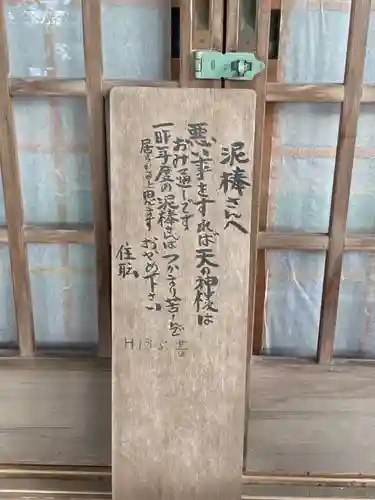 泥棒さんへ
悪い事をすれば天の神様は
おみ通しです
一昨年度の泥棒さんはつかまり苦しんで
居られると思います おやめ下さい
住職
H18.5 書